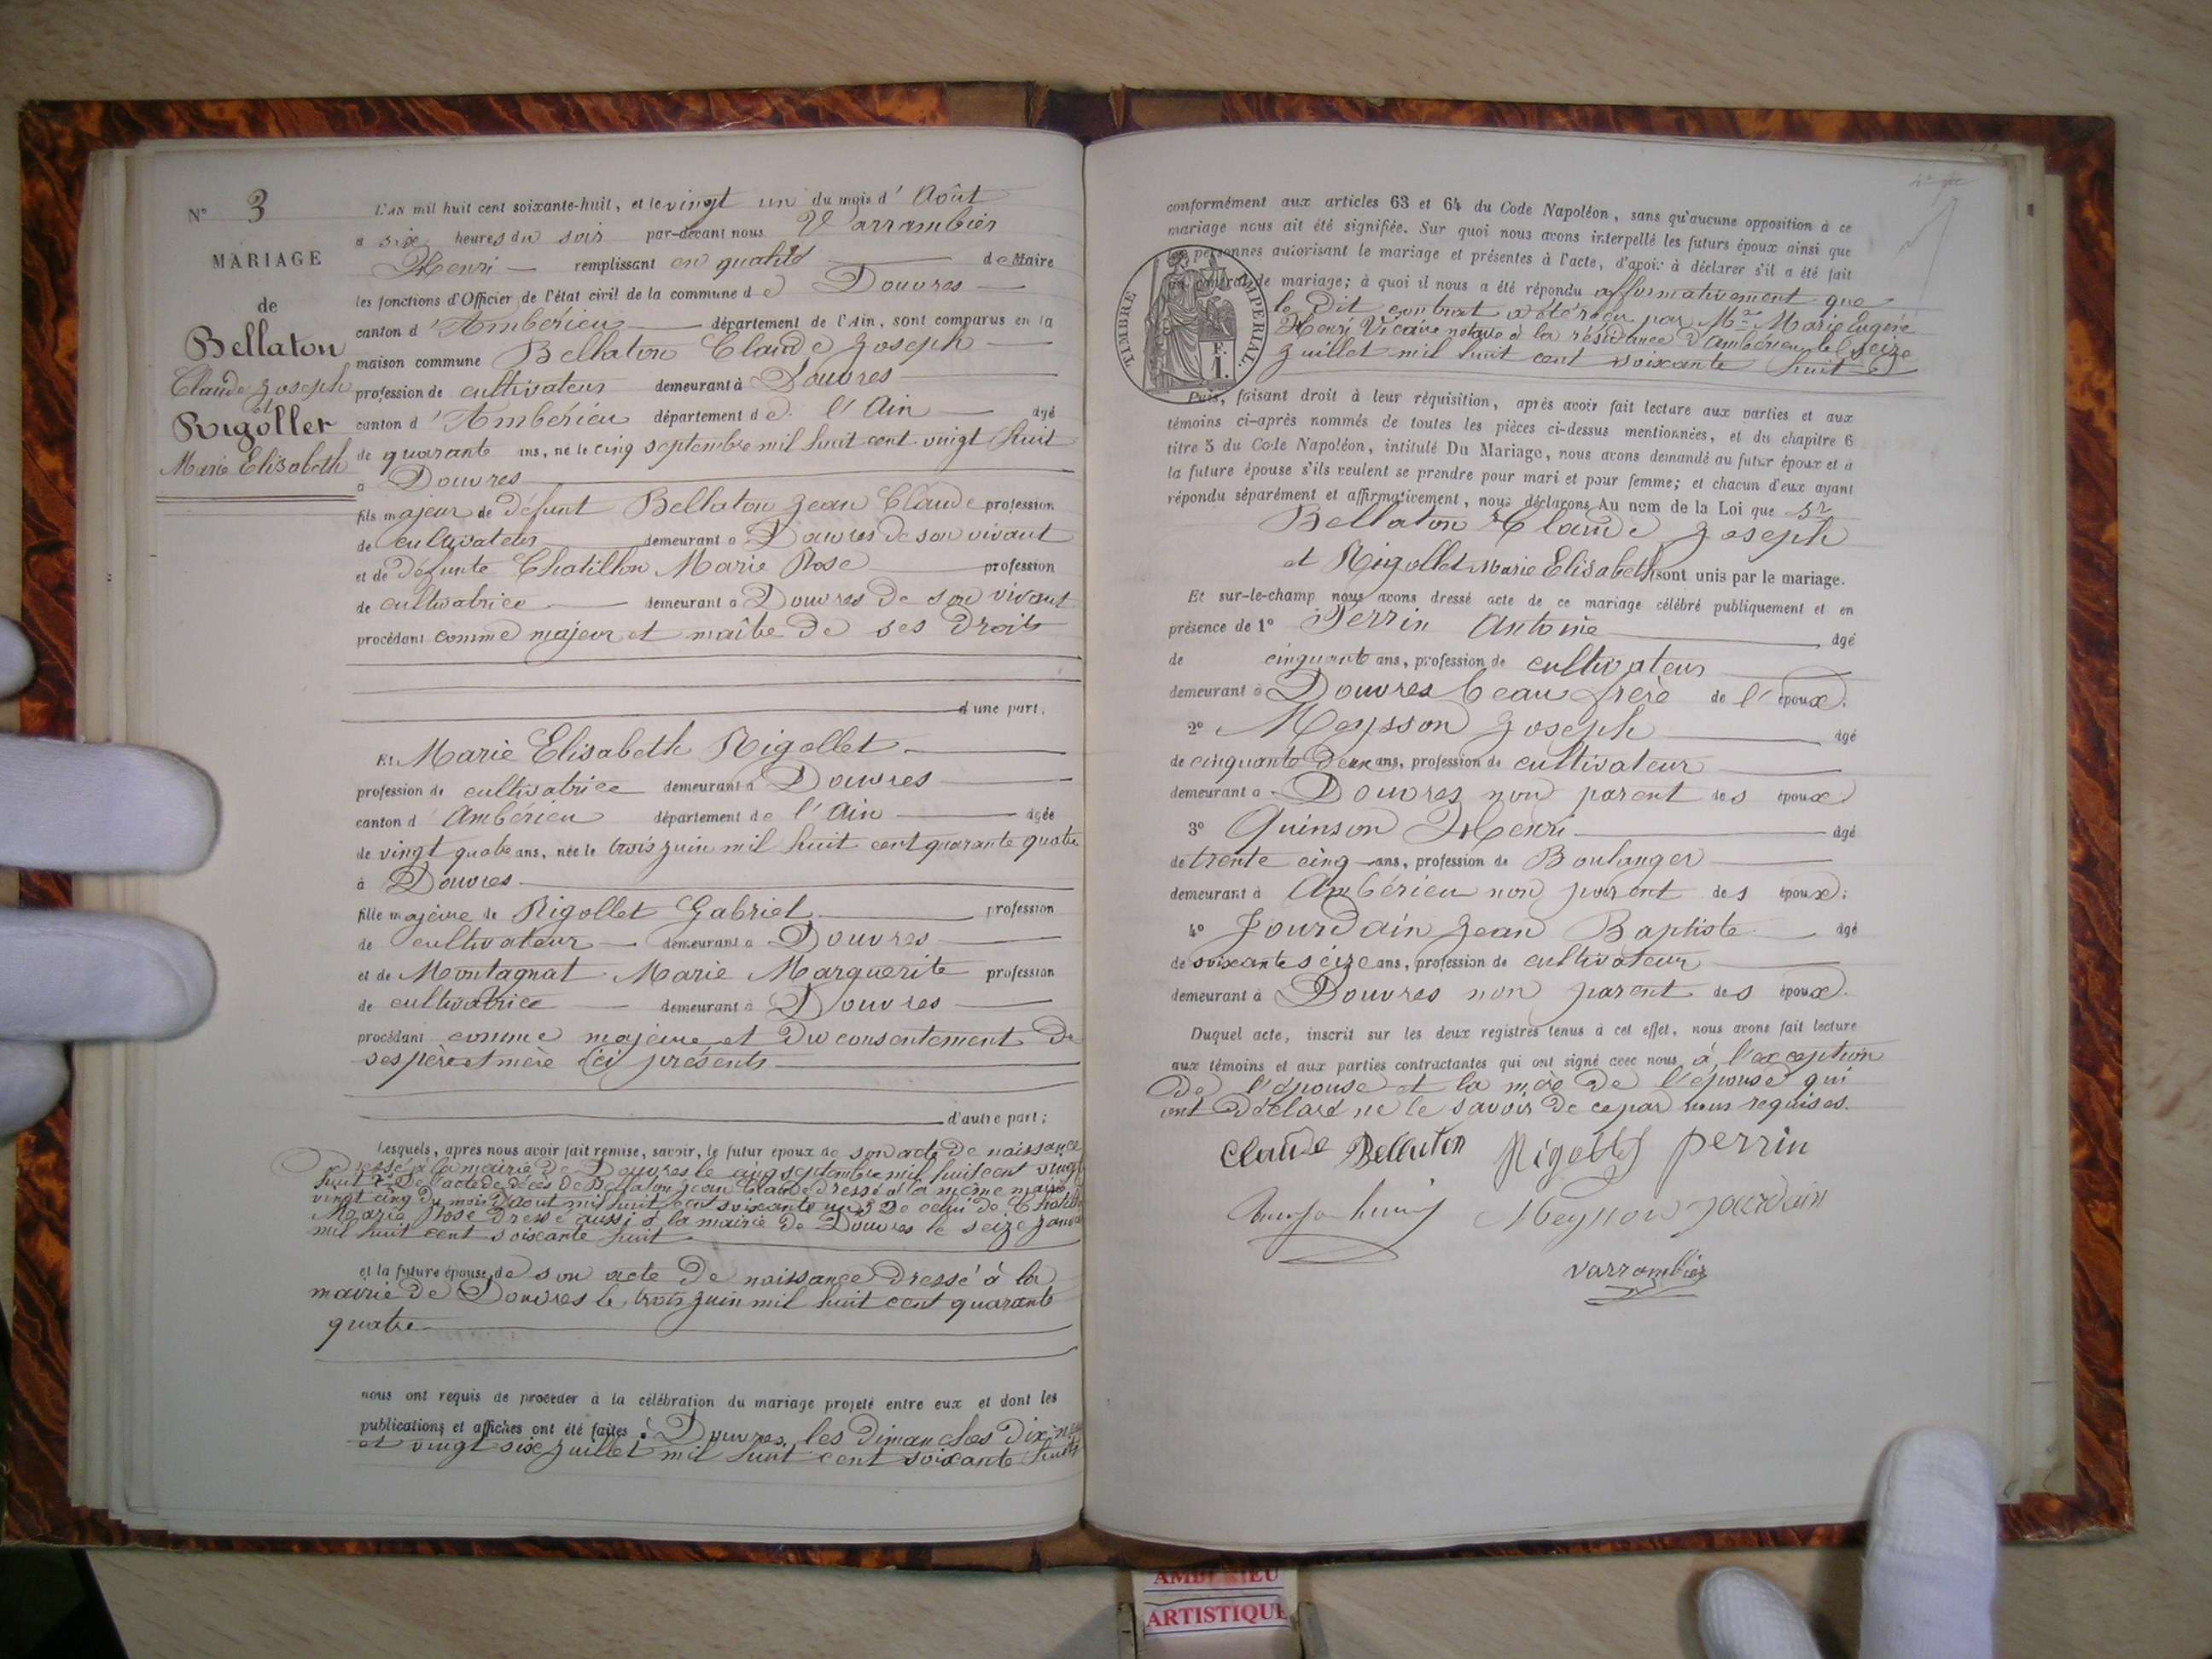 N° 3
MARIAGE
de
Bellaton
Claude Joseph
et
Rigollet
Marie Elisabeth
L'AN mil huit cent soixante-huit, et le vingt un du mois d'Août
à six heures du soir par-devant nous Varrambier
Henri remplissant en qualité de Maire
les fonctions d'Officier de l'état civil de la commune de Douvres
canton d'Ambérieu département de l'Ain, sont comparus en la
maison commune Bellaton Claude Joseph
profession de cultivateur demeurant à Douvres
canton d'Ambérieu département de l'Ain âgé
de quarante ans, né le cinq septembre mil huit cent vingt huit
à Douvres
fils majeur de défunt Bellaton Jean Claude profession
de cultivateur demeurant à Douvres de son vivant
et de défunte Chatillon Marie Rose profession
de cultivatrice demeurant à Douvres de son vivant
procédant comme majeur et maître de ses droits
d'une part.
Et Marie Elisabeth Rigollet
profession de cultivatrice demeurant à Douvres
canton d'Ambérieu département de l'Ain âgée
de vingt quatre ans, née le trois juin mil huit cent quarante quatre
à Douvres
fille majeure de Rigollet Gabriel profession
de cultivateur demeurant à Douvres
et de Montagnat Marie Marguerite profession
de cultivatrice demeurant à Douvres
procédant comme majeure et du consentement de
ses père et mère ici présents
d'autre part;
Lesquels, après nous avoir fait remise, savoir, le futur époux de son acte de naissance
dressé à la mairie de Douvres le cinq septembre mil huit cent vingt
huit 2° de l'acte de décès de Bellaton Jean Claude dressé à la même mairie
vingt cinq du mois d'Août mil huit cent soixante un 3° de celui de Chatillon
Marie Rose dressé aussi à la mairie de Douvres le seize
mil huit cent soixante huit
et la future épouse de son acte de naissance dressé à la
mairie de Douvres le trois juin mil huit cent quarante
quatre
nous ont requis de procéder à la célébration du mariage projeté entre eux et dont les
publications et affiches ont été faites à Douvres, les dimanches dix neuf
et vingt six juillet mil huit cent soixante huit
conformément aux articles 63 et 64 du Code Napoléon, sans qu'aucune opposition à ce
mariage nous ait été signifiée. Sur quoi nous avons interpellé les futurs époux ainsi que
les personnes autorisant le mariage et présentes à l'acte, d'avoir à déclarer s'il a été fait
contrat de mariage; à quoi il nous a été répondu affirmativement que
le dit contrat a été reçu par Me Marie Eugène
Henri Vicaire notaire à la résidence d'Ambérieu le seize
Juillet mil huit cent soixante huit
TIMBRE IMPERIAL.
1 F.
Puis, faisant droit à leur réquisition, après avoir fait lecture aux parties et aux
témoins ci-après nommés de toutes les pièces ci-dessus mentionnées, et du chapitre 6
titre 5 du Code Napoléon, intitulé Du Mariage, nous avons demandé au futur époux et à
la future épouse s'ils veulent se prendre pour mari et pour femme; et chacun d'eux ayant
répondu séparément et affirmativement, nous déclarons Au nom de la Loi que Sr
Bellaton Claude Joseph
et Rigollet Marie Elisabeth sont unis par le mariage.
Et sur-le-champ nous avons dressé acte de ce mariage célébré publiquement et en
présence de 1° Perrin Antoine âgé
de cinquante ans, profession de cultivateur
demeurant à Douvres beau frère de l'époux;
2° Meysson Joseph âgé
de cinquante deux ans, profession de cultivateur
demeurant à Douvres non parent des époux;
3° Quinson Henri âgé
de trente cinq ans, profession de Boulanger
demeurant à Ambérieu non parent des époux;
4° Jourdain Jean Baptiste âgé
de soixante seize ans, profession de cultivateur
demeurant à Douvres non parent des époux.
Duquel acte, inscrit sur les deux registres tenus à cet effet, nous avons fait lecture
aux témoins et aux parties contractantes qui ont signé avec nous, à l'exception
de l'épouse et la mère de l'épouse qui
ont déclaré ne le savoir de ce par nous requises.
Claude Bellaton Rigollet perrin
Meysson Jourdain
Varrambier
AMBERIEU
ARTISTIQUE